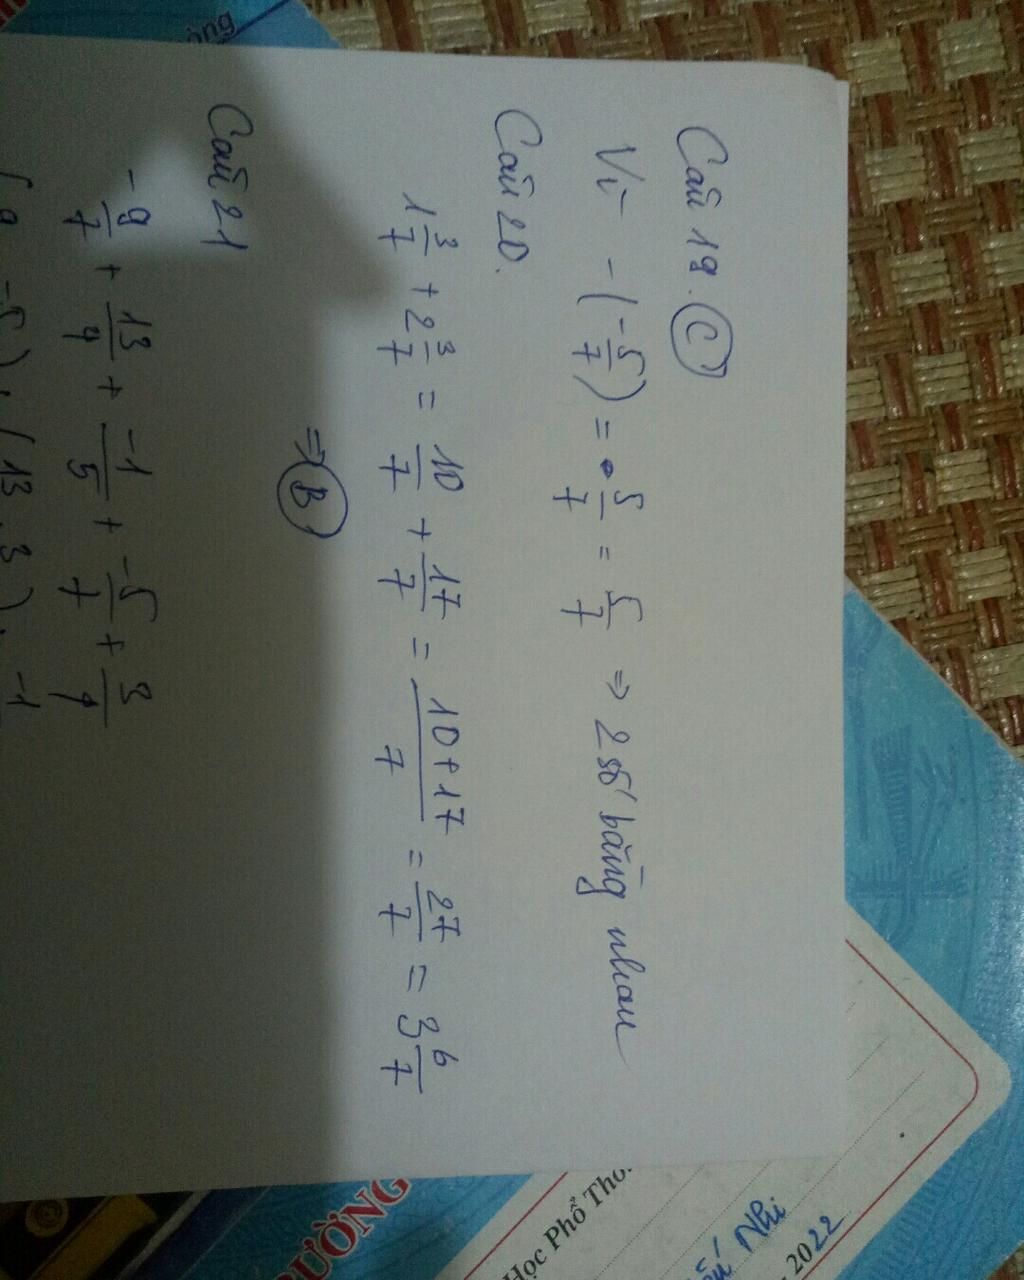 Câu 19. C
Vì -(-5/7) = 5/7 = 5/7 => 2 số bằng nhau
Câu 20.
1 3/7 + 2 3/7 = 10/7 + 17/7 = 10+17/7 = 27/7 = 3 6/7
=> B
Câu 21
-9/7 + 13/4 + -1/5 + -5/7 + 3/4
Học Phổ Thô
Nhi
2022
ƯỜNG